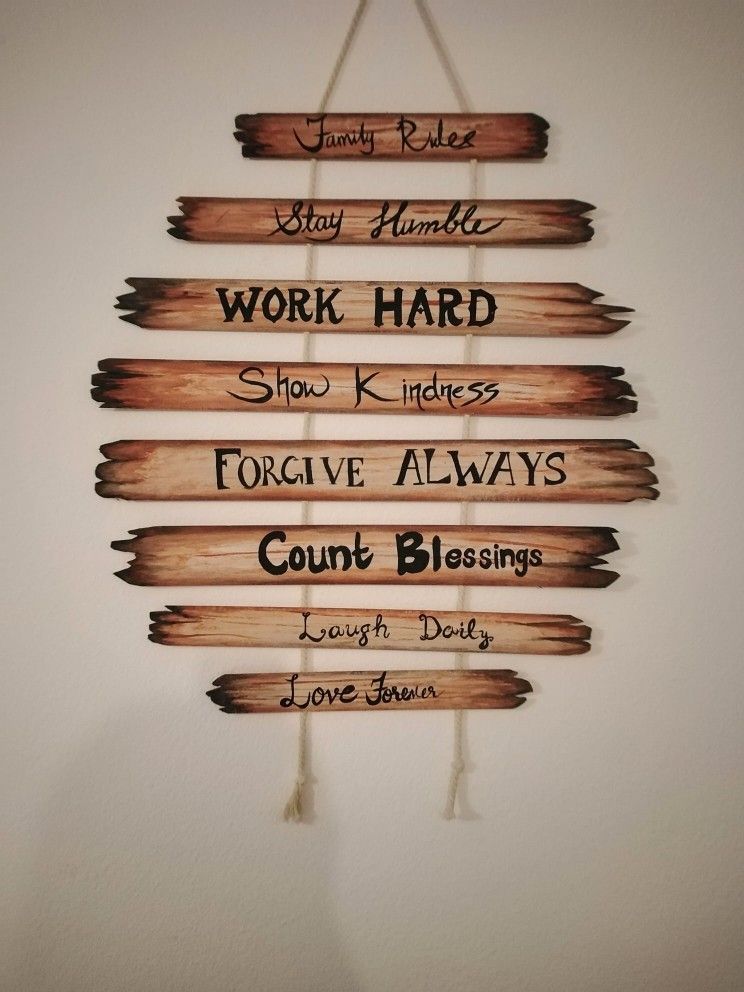 Family Rules
Stay Humble
WORK HARD
Show Kindness
FORGIVE ALWAYS
Count Blessings
Laugh Daily
Love Forever